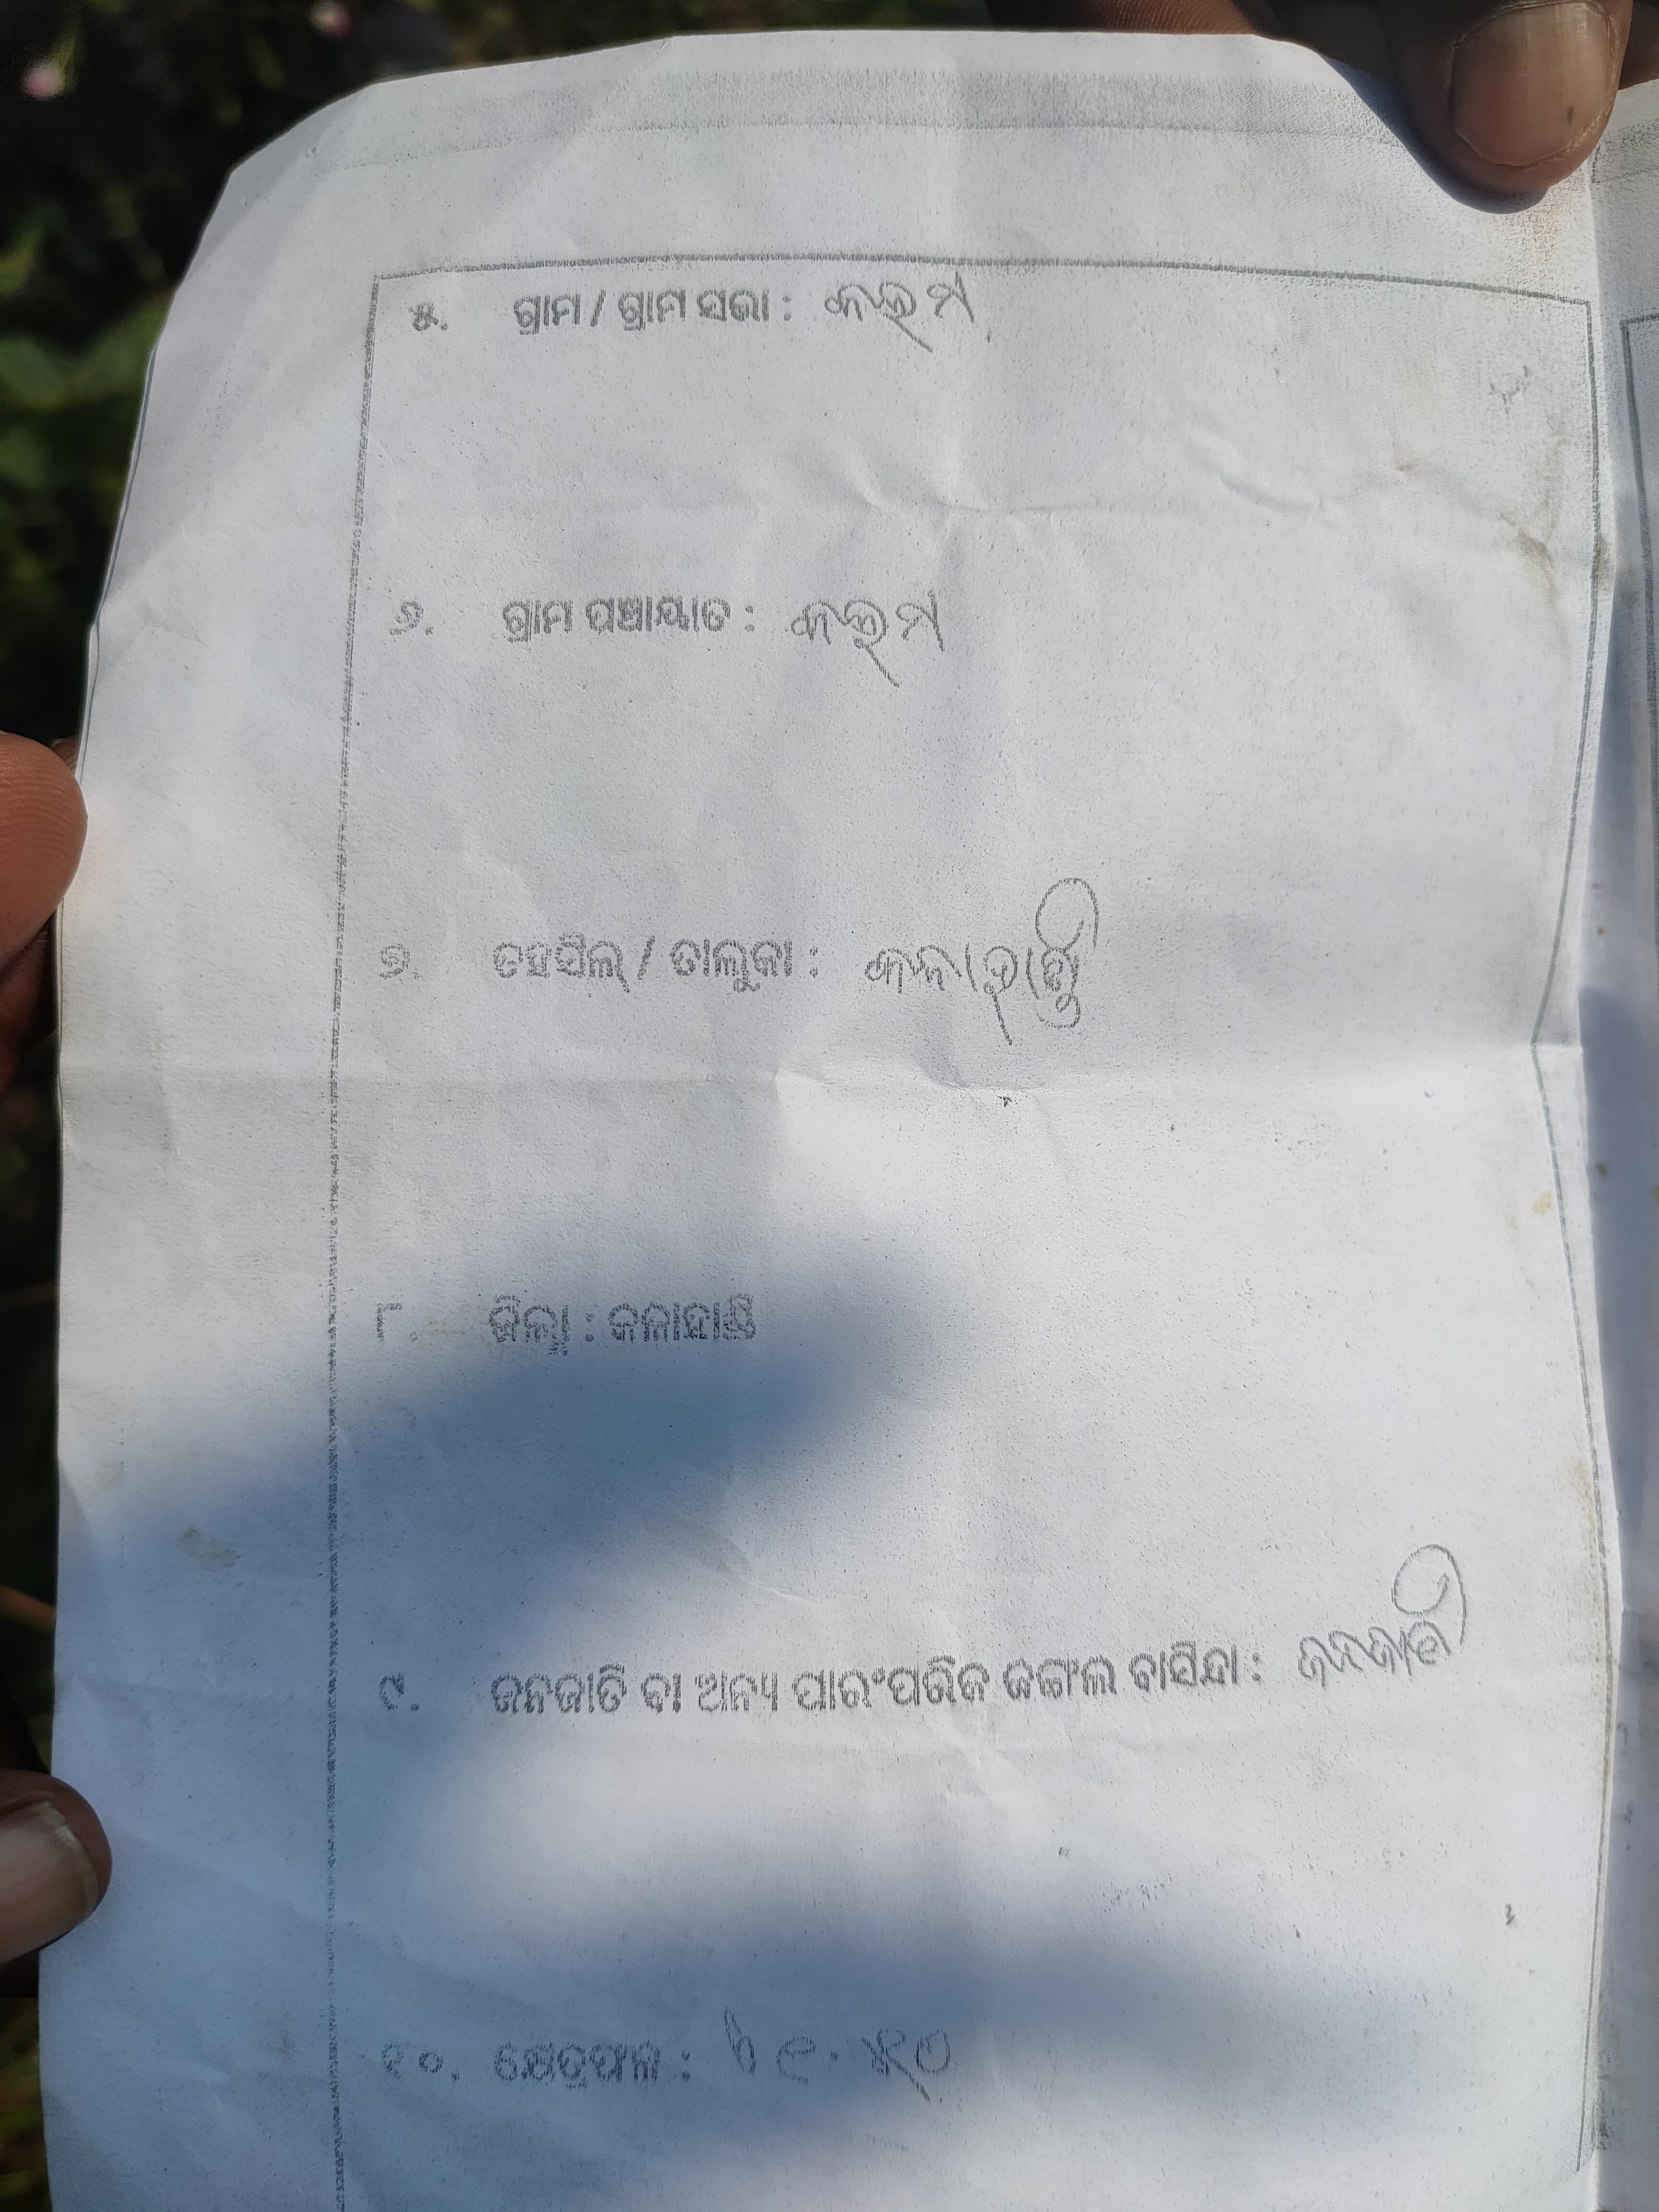 ୫. ଗ୍ରାମ / ଗ୍ରାମ ସଭା : କରମ
୬. ଗ୍ରାମ ପଞ୍ଚାୟାତ : କରମ
୭. ତହସିଲ୍ / ତାଲୁକା :
୮. ଜିଲ୍ଲା : କଳାହାଣ୍ଡି
୯. ଜନଜାତି ବା ଅନ୍ୟ ପାରଂପରିକ ଜଙ୍ଗଲ ବାସିନ୍ଦା : ଜନଜାତି
୧୦. କ୍ଷେତ୍ରଫଳ :